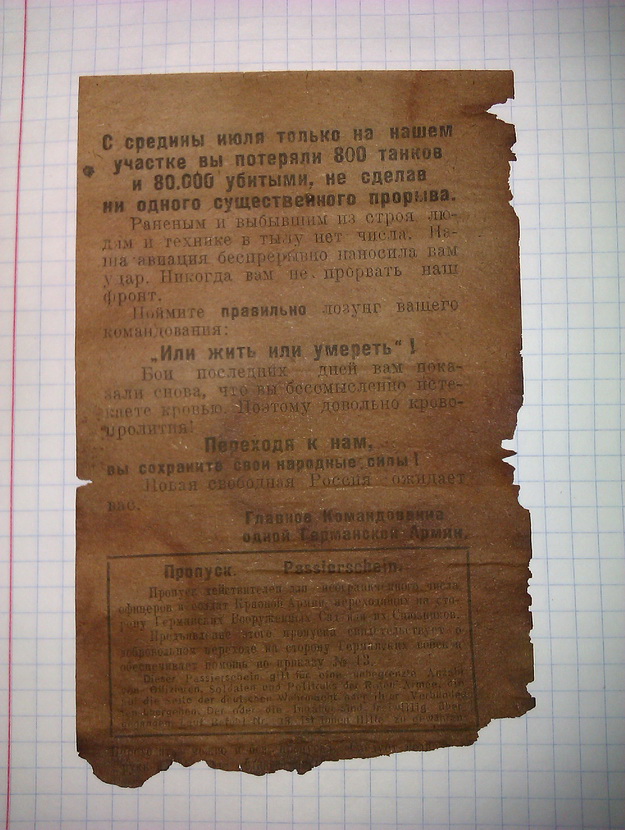 С средины июля только на нашем
участке вы потеряли 800 танков
и 80.000 убитыми, не сделав
ни одного существенного прорыва.
Раненым и выбывшим из строя лю-
дям и технике в тылу нет числа. На-
ша авиация беспрерывно наносила вам
удар. Никогда вам не прорвать наш
фронт.
Поймите правильно лозунг вашего
командования:
„Или жить или умереть“!
Бои последних дней вам пока-
зали снова, что вы бессмысленно исте-
каете кровью. Поэтому довольно крово-
пролития!
Переходя к нам,
вы сохраните свои народные силы!
Новая свободная Россия ожидает
вас.
Главное Командование
одной Германской Армии.
Пропуск. Passierschein.
Пропуск действителен для неограниченного числа
офицеров и солдат Красной Армии, переходящих на сто-
рону Германских Вооруженных Сил или их Союзников.
Предъявление этого пропуска свидетельствует о
добровольном переходе на сторону Германских войск и
обеспечивает помощь по приказу № 13.
Dieser Passierschein gilt für eine unbegrenzte Anzahl
von Offizieren, Soldaten und Politruks der Roten Armee, die
auf die Seite der deutschen Wehrmacht oder ihrer Verbündeten